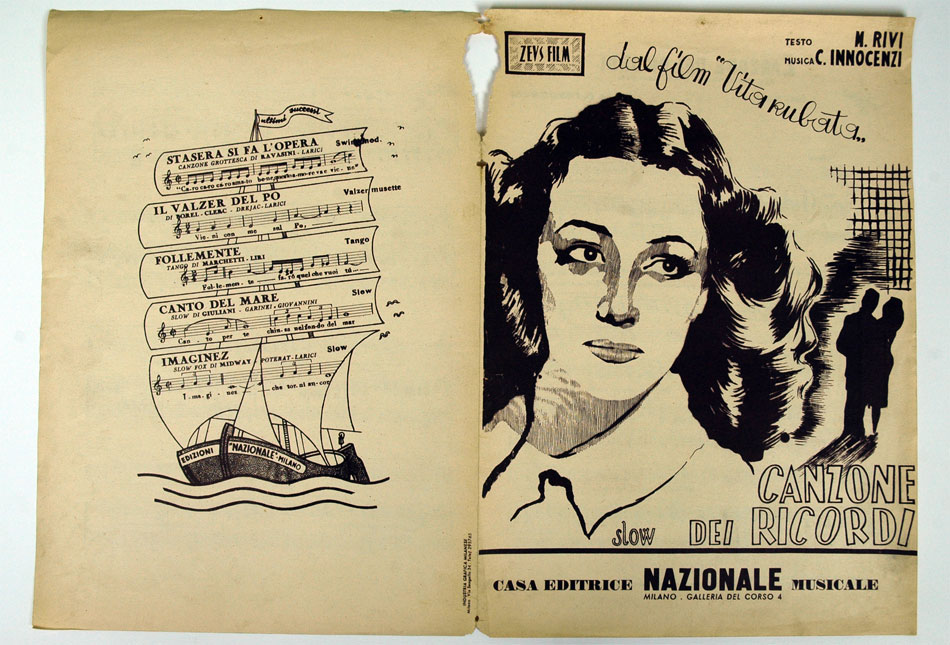 ultimi successi
STASERA SI FA L'OPERA
Swing mod.
CANZONE GROTTESCA DI RAVASINI - LARICI
"Ca-ro ca-ro ca-ro ama-to be-ne, quan-to a-mo-re va e vie-ne"
IL VALZER DEL PO
Valzer musette
DI BOREL-CLERC - DREJAC-LARICI
Vie-ni con me sul Po,
FOLLEMENTE
Tango
TANGO DI MARCHETTI - LIRI
Fol-le-men-te fa-rò quel che vuoi tu
CANTO DEL MARE
Slow
SLOW DI GIULIANI - GARINEI - GIOVANNINI
Can - to per te chiu-sa nel fon-do del mar
IMAGINEZ
Slow
SLOW FOX DI MIDWAY - POTERAT-LARICI
I-ma-gi-nez che tor-ni an-cor
EDIZIONI "NAZIONALE" - MILANO
INDUSTRIA GRAFICA MILANESI
ZEUS FILM
TESTO M. RIVI
MUSICA C. INNOCENZI
dal film "Vita rubata„
CANZONE
slow DEI RICORDI
CASA EDITRICE NAZIONALE MUSICALE
MILANO . GALLERIA DEL CORSO 4